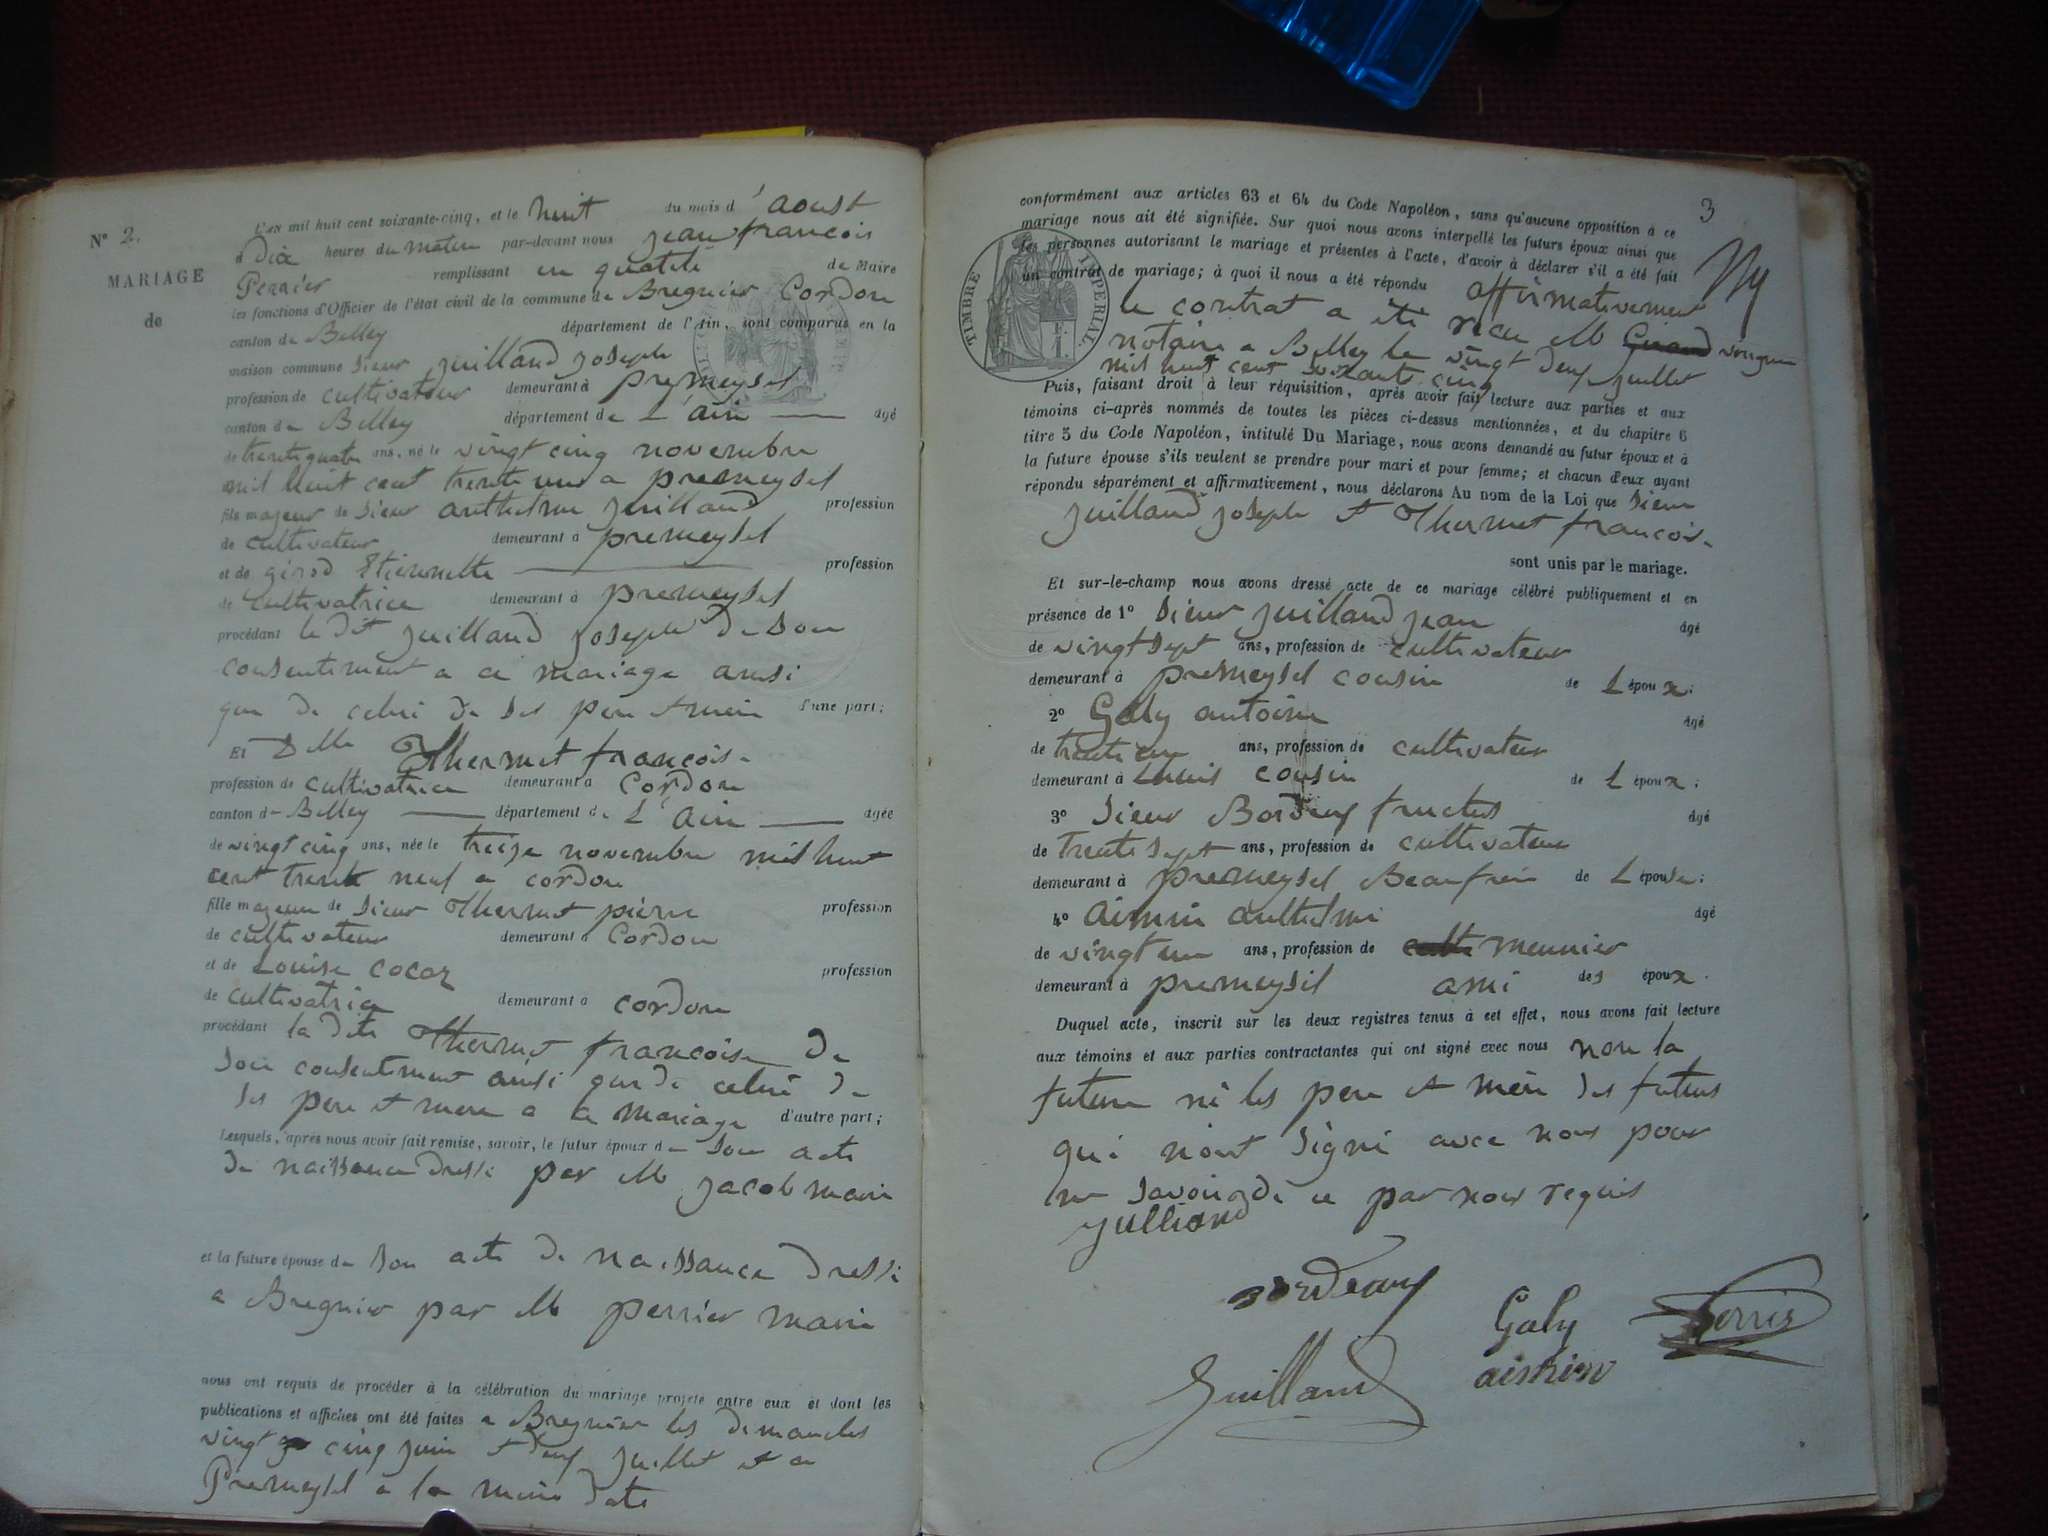 N° 2.
MARIAGE
de
L'AN mil huit cent soixante-cinq, et le huit du mois d'aoust
à Dix heures du matin par-devant nous jean françois
Perrier remplissant en qualité de Maire
les fonctions d'Officier de l'état civil de la commune de Bregnier Cordon
canton de Belley département de l'Ain, sont comparus en la
maison commune Sieur juilland joseph
profession de cultivateur demeurant à premeysel
canton de Belley département de L'ain âgé
de trente quatre ans, né le vingt cinq novembre
mil huit cent trente un a premeysel
fils majeur de Sieur anthelme juilland profession
de cultivateur demeurant à premeysel
et de girod Etiennette profession
de cultivatrice demeurant à premeysel
procédant le dit juilland joseph de son
consentement a ce mariage ainsi
que de celui de ses pere et mere d'une part;
Et Delle Thermet françois-
profession de cultivatrice demeurant à Cordon
canton de Belley département de L'Ain âgée
de vingt cinq ans, née le treize novembre mil huit
cent trente neuf a cordon
fille majeure de Sieur Thermet pierre profession
de cultivateur demeurant à Cordon
et de Louise Cocoz profession
de cultivatrice demeurant à cordon
procédant la dite Thermet françoise de
son consentement ainsi que de celui de
ses pere et mere a ce mariage d'autre part;
Lesquels, après nous avoir fait remise, savoir, le futur époux de son acte
de naissance dressé par M jacob maire
et la future épouse de son acte de naissance dressé
a Bregnier par M perrier maire
nous ont requis de procéder à la célébration du mariage projeté entre eux et dont les
publications et affiches ont été faites a Bregnier les dimanches
vingt cinq juin et deux juillet et a
Premeysel a la meme date
3
conformément aux articles 63 et 64 du Code Napoléon, sans qu'aucune opposition à ce
mariage nous ait été signifiée. Sur quoi nous avons interpellé les futurs époux ainsi que
les personnes autorisant le mariage et présentes à l'acte, d'avoir à déclarer s'il a été fait
un contrat de mariage; à quoi il nous a été répondu affirmativement
TIMBRE IMPERIAL.
le contrat a été recu M
notaire a Belley le vingt deux juillet
mil huit cent soixante cinq
Puis, faisant droit à leur réquisition, après avoir fait lecture aux parties et aux
témoins ci-après nommés de toutes les pièces ci-dessus mentionnées, et du chapitre 6
titre 5 du Code Napoléon, intitulé Du Mariage, nous avons demandé au futur époux et à
la future épouse s'ils veulent se prendre pour mari et pour femme; et chacun d'eux ayant
répondu séparément et affirmativement, nous déclarons Au nom de la Loi que Sieur
juilland joseph et Thermet françois-
sont unis par le mariage.
Et sur-le-champ nous avons dressé acte de ce mariage célébré publiquement et en
présence de 1° Sieur juilland jean âgé
de vingt sept ans, profession de cultivateur
demeurant à premeysel cousin de L époux;
2° Galy antoine âgé
de trente un ans, profession de cultivateur
demeurant à cousin de L époux;
3° Sieur Bordeux fructus âgé
de trente sept ans, profession de cultivateur
demeurant à premeysel Beaufrere de L épouse;
4° aimin anthelme âgé
de vingt un ans, profession de meunier
demeurant à premeysil ami des époux.
Duquel acte, inscrit sur les deux registres tenus à cet effet, nous avons fait lecture
aux témoins et aux parties contractantes qui ont signé avec nous non la
future ni les pere et mere des futurs
qui n'ont signé avec nous pour
ne savoir de ce par nous requis
julliand
Bordeaux
Galy
Perrier
Juilland